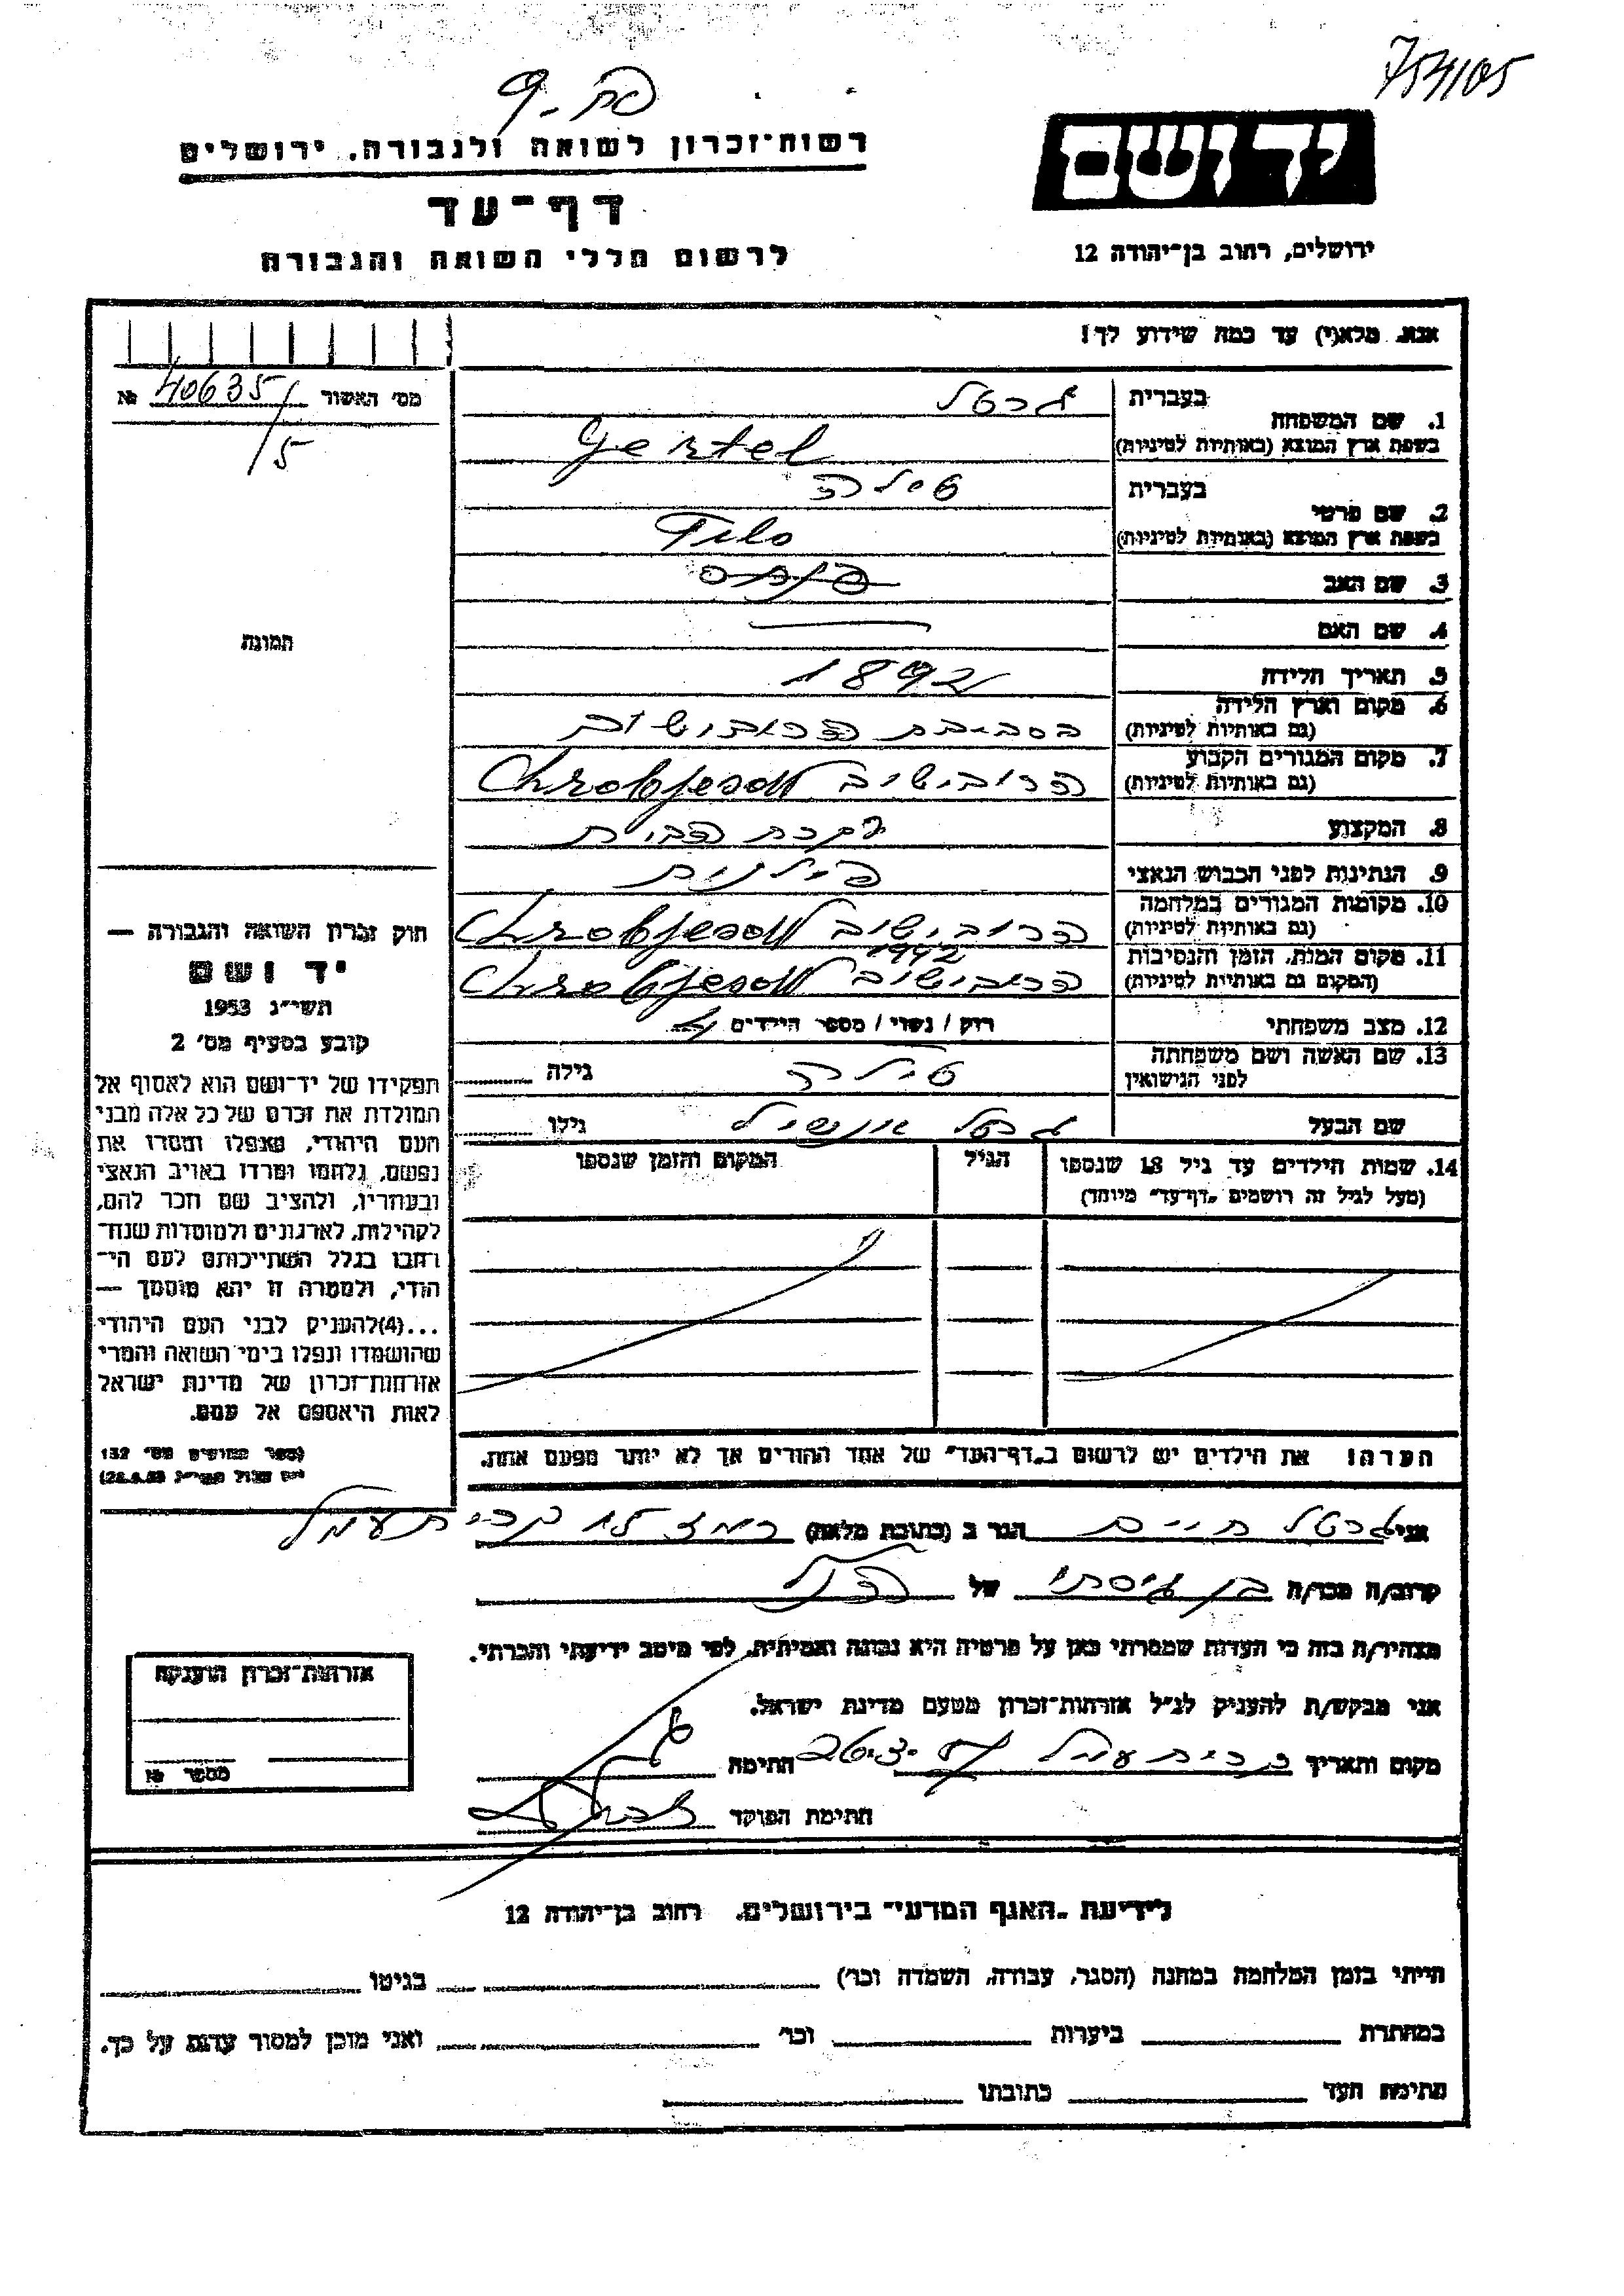 754105
רשות־זכרון לשואה ולגבורה. ירושלים
יד ושם
דף־עד
ירושלים, רחוב בן־יהודה 12
לרשום חללי השואה והגבורה
אנא. מלא(י) עד כמה שידוע לך!
מס׳ האשור № 40635/
/5
1. שם המשפחה
בעברית גרטל
בשפת ארץ המוצא (באותיות לטיניות) Gertel
2. שם פרטי
בעברית טילה
בשפת ארץ המוצא (באותיות לטיניות) Tilo
3. שם האב
4. שם האם
תמונה
5. תאריך הלידה 1892
6. מקום וארץ הלידה
(גם באותיות לטיניות) בסביבת הרובישוב
7. מקום המגורים הקבוע
(גם באותיות לטיניות) הרובישוב Chrobjesow
8. המקצוע עקרת הבית
9. הנתינות לפני הכבוש הנאצי פולנית
10. מקומות המגורים במלחמה
(גם באותיות לטיניות) הרובישוב Chrobjesow
11. מקום המות, הזמן והנסיבות 1942
(המקום גם באותיות לטיניות) הרובישוב Chrobjesow
12. מצב משפחתי רוק / נשוי / מספר הילדים
13. שם האשה ושם משפחתה
לפני הנישואין טילה גילה
שם הבעל גרטל אנשיל גילו
14. שמות הילדים עד גיל 18 שנספו הגיל המקום והזמן שנספו
(מעל לגיל זה רושמים „דף־עד" מיוחד)
חוק זכרון השואה והגבורה —
יד ושם
תשי״ג 1953
קובע בסעיף מס׳ 2
תפקידו של יד־ושם הוא לאסוף אל
המולדת את זכרם של כל אלה מבני
העם היהודי, שנפלו ומסרו את
נפשם, נלחמו ומרדו באויב הנאצי
ובעוזריו, ולהציב שם וזכר להם,
לקהילות, לארגונים ולמוסדות שנח־
רבו בגלל השתייכותם לעם הי־
הודי, ולמטרה זו יהא מוסמך —
...(4)להעניק לבני העם היהודי
שהושמדו ונפלו בימי השואה והמרי
אזרחות־זכרון של מדינת ישראל
לאות היאספם אל עמם.
(ספר החוקים מס׳ 132
הערה! את הילדים יש לרשום ב„דף־העד" של אחד ההורים אך לא יותר מפעם אחת.
אני גרטל חיים הגר ב (כתובת מלאה) רמז קרית עמל
קרוב/ה מכר/ה בן גיסתו של הנ״ל
מצהיר/ה בזה כי העדות שמסרתי כאן על פרטיה היא נכונה ואמיתית, לפי מיטב ידיעתי והכרתי.
אני מבקש/ת להעניק לנ״ל אזרחות־זכרון מטעם מדינת ישראל.
מקום ותאריך קרית עמל חתימה
חתימת הפוקד
אזרחות־זכרון הוענקה
מספר №
לידיעת „האגף המדעי" בירושלים. רחוב בן־יהודה 12
הייתי בזמן המלחמה במחנה (הסגר, עבודה, השמדה וכו׳) בגיטו
במחתרת ביערות וכו׳ ואני מוכן למסור עדות על כך.
חתימת העד כתובתו